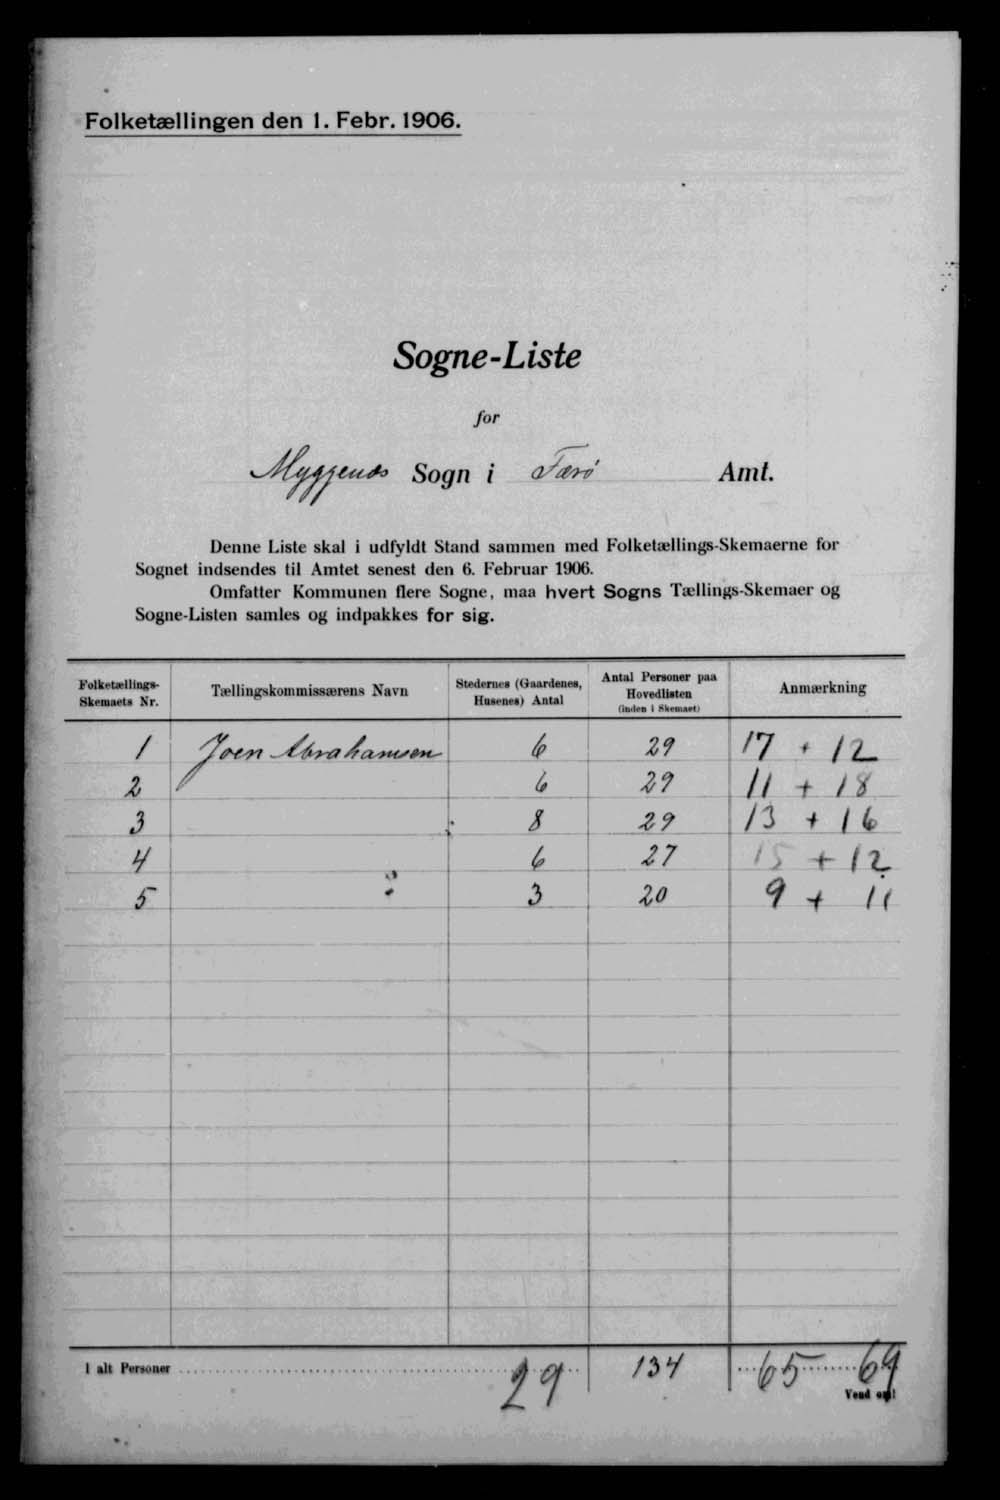 Folketællingen den 1. Febr. 1906.
Sogne-Liste
for
Myggenæs Sogn i Færø Amt.
Denne Liste skal i udfyldt Stand sammen med Folketællings-Skemaerne for
Sognet indsendes til Amtet senest den 6. Februar 1906.
Omfatter Kommunen flere Sogne, maa hvert Sogns Tællings-Skemaer og
Sogne-Listen samles og indpakkes for sig.
Folketællings-
Skemaets Nr.
Tællingskommissærens Navn
Stedernes (Gaardenes,
Husenes) Antal
Antal Personer paa
Hovedlisten
(inden i Skemaet)
Anmærkning
1 Joen Abrahamsen 6 29 17 + 12
2 6 29 11 + 18
3 8 29 13 + 16
4 6 27 15 + 12
5 3 20 9 + 11
I alt Personer 29 134 65 69
Vend om!